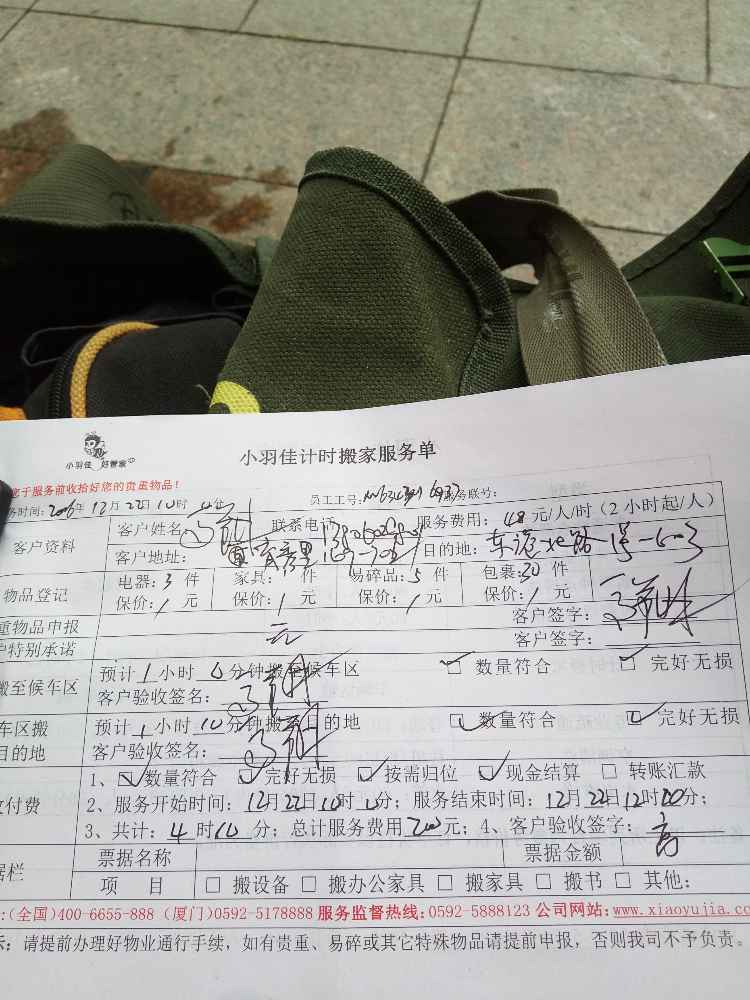 小羽佳 好管家
小羽佳计时搬家服务单
您于服务前收拾好您的贵重物品！
务时间：2006年12月22日10时 分 员工工号： 服务联号：
客户资料 客户姓名： 联系电话： 服务费用：48元/人/时（2小时起/人）
客户地址： 目的地：
物品登记 电器：3件 家具：件 易碎品：5件 包裹：30件
保价：/元 保价：1元 保价：/元 保价：/元
重物品申报 客户签字：
户特别承诺 无 客户签字：
搬至候车区 预计1小时0分钟搬至候车区 ☑ 数量符合 ☑ 完好无损
客户验收签名：
车区搬 预计1小时10分钟搬至目的地 ☑ 数量符合 ☑ 完好无损
目的地 客户验收签名：
付费 1、☑数量符合 ☑完好无损 ☑按需归位 ☑现金结算 □转账汇款
2、服务开始时间：12月22日10时 分；服务结束时间：12月22日12时00分；
3、共计：4时10分；总计服务费用200元；4、客户验收签字：
据栏 票据名称 票据金额
项 目 □ 搬设备 □ 搬办公家具 □ 搬家具 □ 搬书 □ 其他：
：(全国)400-6655-888 (厦门)0592-5178888 服务监督热线：0592-5888123 公司网站：www.xiaoyujia.co
示：请提前办理好物业通行手续，如有贵重、易碎或其它特殊物品请提前申报，否则我司不予负责。